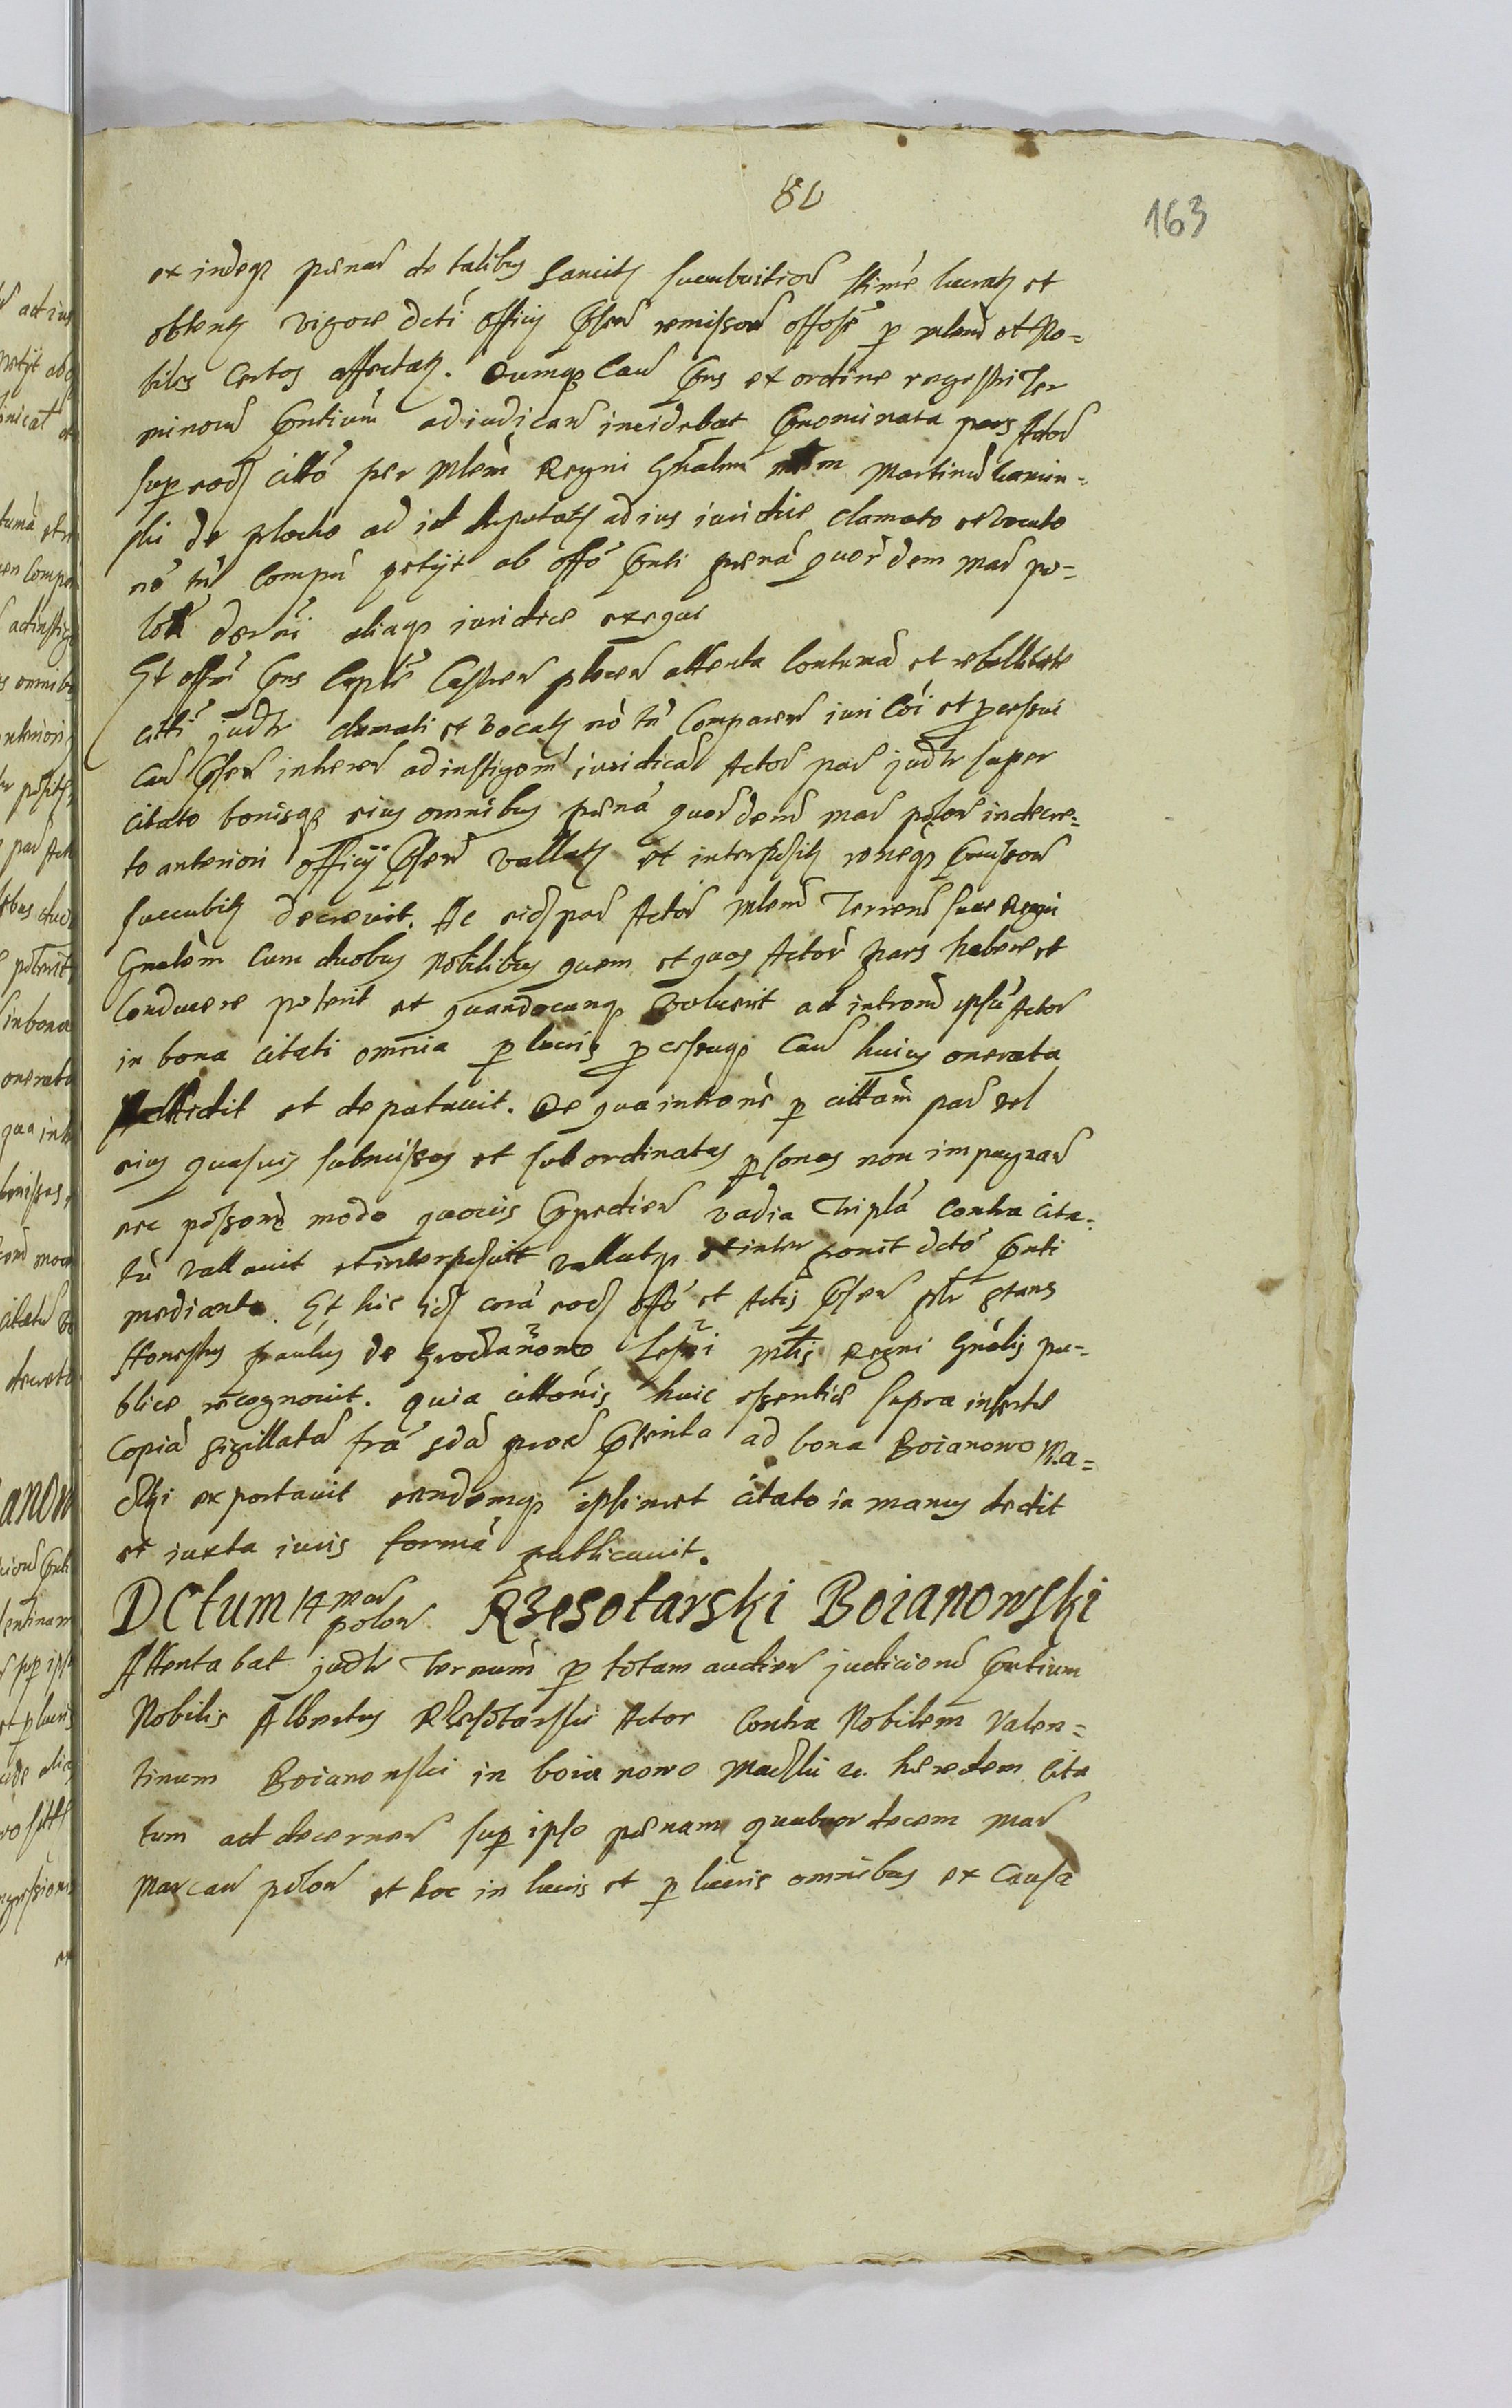 163
ex indeq₃ pœnar de talibus Sancitis succubuitior stimé lucratis et
obtentis vigore dcti officij pñsen remissor offosé p Mlem et No=
biles certos affectatis. Cumq₃ Cau pñs ex ordine regestri Ter
minorum pñtium adiudicand incidebat pñnominata pars Actor
sup eod citto per Mlem Regni Gnalem Martinu Camin=
ski de plocko ad id deputatis ad ius iuridice clamato et vocato
nō tn Compn petijt ab offo pñti pœná quor dem mar po=
derni aliaq₃ iuridice exequi
Et offm pñs Caple Castren plocen attenta Contumá et rebellitate
citti judtr clamati et vocatis nō tn Comparen iuri Cōi et pcessui
Cau pñsen inheren ad instigom iuridica Actor par judtr super
citato bonisq₃ eius omnibus pœná quor dem mar polon in decre=
to anteriori officij pñsen vallatis et interpositis
succubitis decrevit. Ac eid par Actor Mlem Terren siue Regni
Gnalem cum duobus Nobilibus quem et quos Actor pars habere et
Conducere poterit et quandocunq₃ voluerit ad introm ipsu Actor
in bona citati omnia p lucris pcessuq₃ Cau huius onerata
addidit et deputauit. De qua introne p cittam par vel
eius quasuis submissas et subordinatas psonas non impugnar
nec possone modo quouis Expedien vadia Tripla Contra Cita=
tu vallauit et interposuit vallatq₃ et inter ponit dcto pñti
mediante. Et hic ibd corá eod offo et Actis pñsen pltr stans
Honestus paulus de Grodzanowo Mlis Regni Gnalis pu=
blice recognouit. quia cittonis huic essentiae supra inserte
Copiá sigillatá frá 2dá pñterita ad bona Boianowo Ma=
dki exportauit eandemq₃ ipsimet citato in manus dedit
et iuxta iuris formá publicauit.
DCtum 14 mar polon Rzesotarski Boianowski
Attentabat judtr Ternum p totam audien judiciorum pñtium
Nobilis Albertus Rzesotarski Actor Contra Nobilem Valen=
tinum Boianowski in boianowo Madzki et heredem Cita
tum ad decernen sup ipso pœnam quatuordecem mar
Marcar polon et hoc in lucris et p lucris omnibus ex Causa